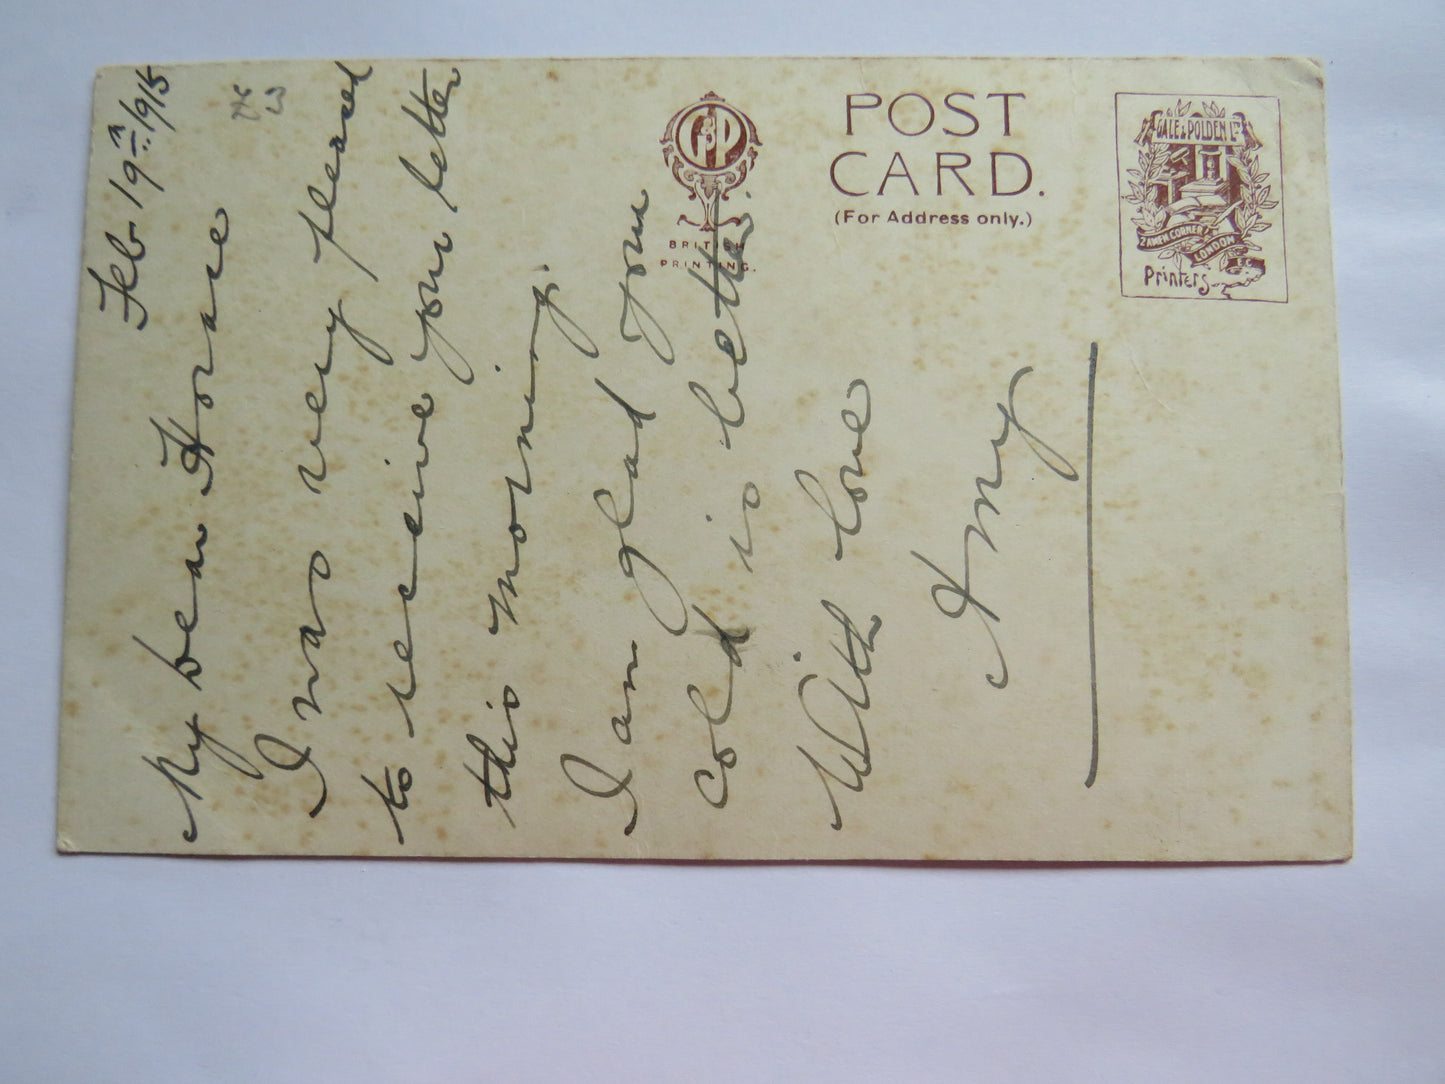 Feb 19th 1915
£3
My dear Horace
I was very pleased
to receive your letter
this morning.
I am glad your
cold is better.
With love
Amy
G&P
BRITISH
PRINTING.
POST
CARD.
(For Address only.)
GALE & POLDEN LTD
2 AMEN CORNER
LONDON
E.C.
Printers